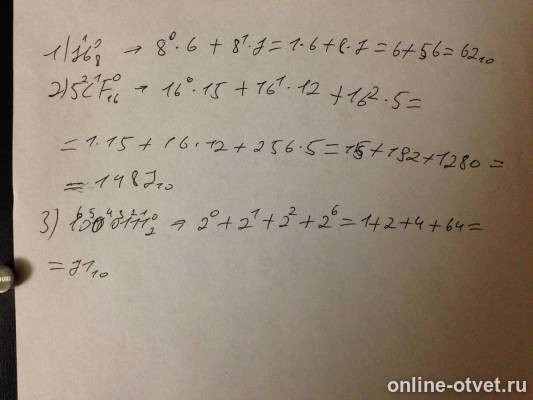 1) 7¹6⁰₈ → 8⁰·6 + 8¹·7 = 1·6 + 8·7 = 6 + 56 = 62₁₀
2) 5²C¹F⁰₁₆ → 16⁰·15 + 16¹·12 + 16²·5 =
= 1·15 + 16·12 + 256·5 = 15 + 192 + 1280 =
= 1487₁₀
3) 1⁶0⁵0⁴0³1²1¹1⁰₂ → 2⁰ + 2¹ + 2² + 2⁶ = 1 + 2 + 4 + 64 =
= 71₁₀
online-otvet.ru